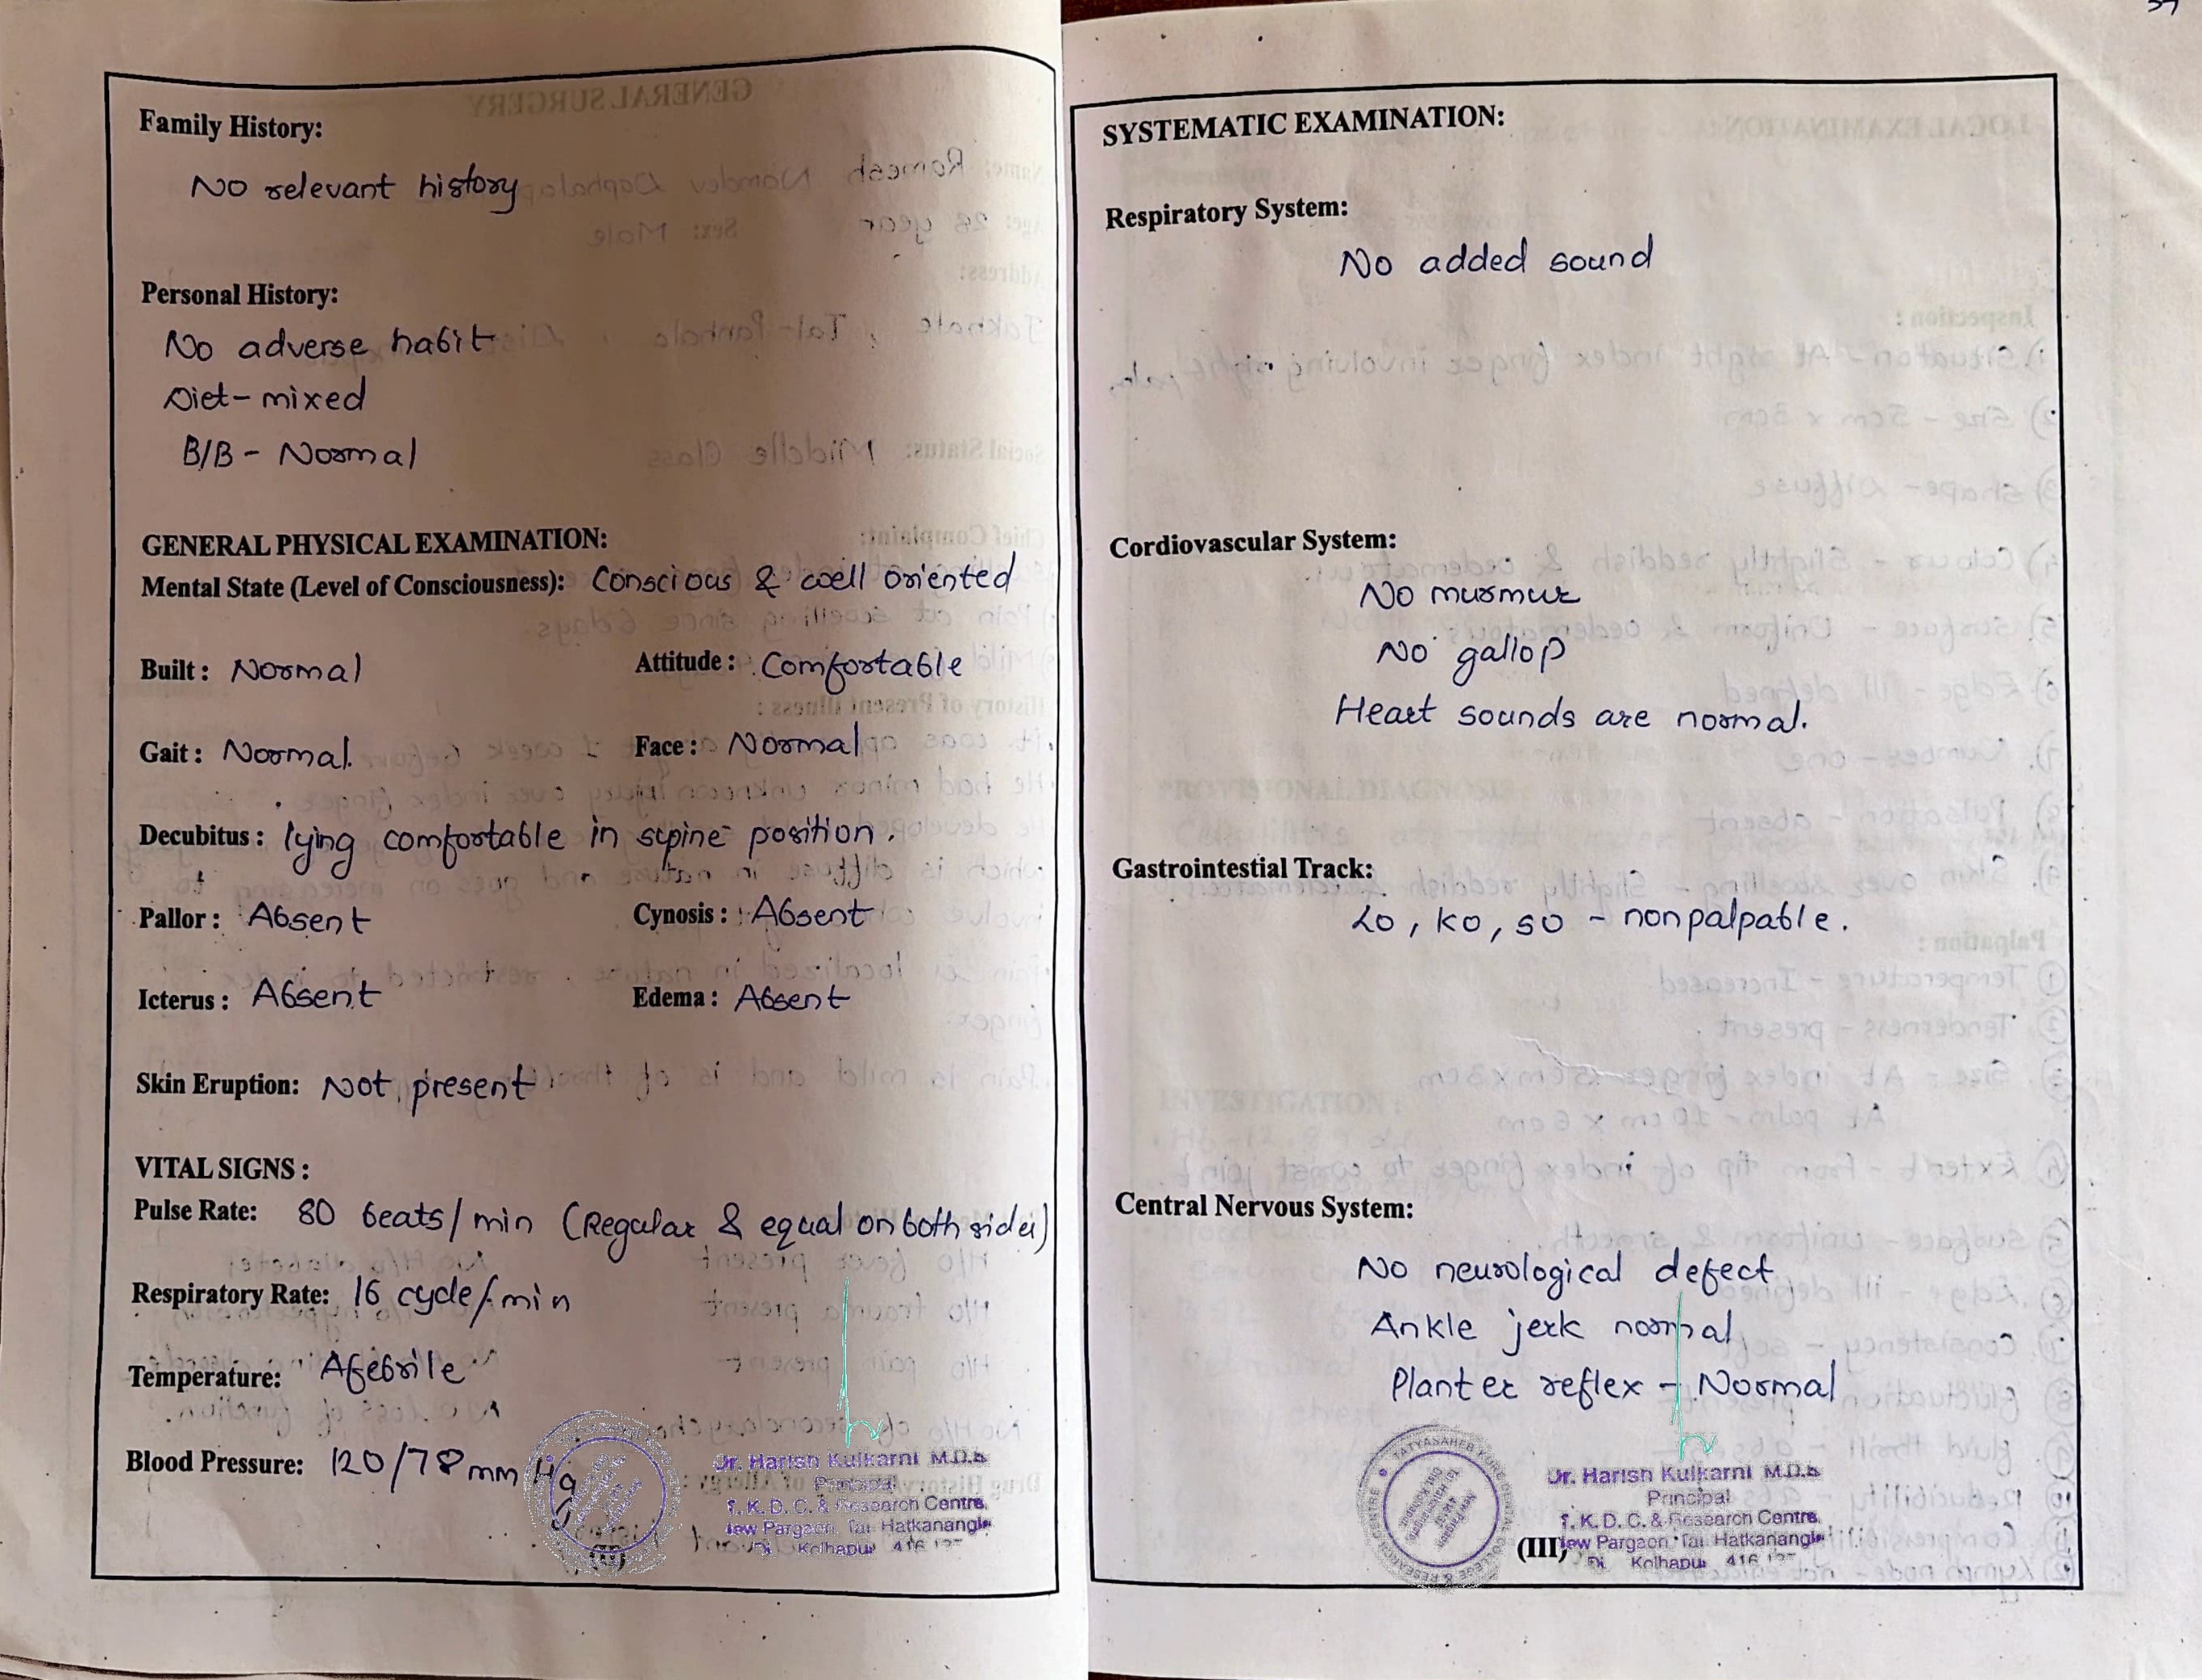 Family History:
No relevant history
Personal History:
No adverse habit
Diet - mixed
B/B - Normal
GENERAL PHYSICAL EXAMINATION:
Mental State (Level of Consciousness): Conscious & well oriented
Built : Normal Attitude : Comfortable
Gait : Normal. Face : Normal
Decubitus : lying comfortable in supine position.
Pallor : Absent Cynosis : Absent
Icterus : Absent Edema : Absent
Skin Eruption: Not present
VITAL SIGNS :
Pulse Rate: 80 beats/min (Regular & equal on both sides)
Respiratory Rate: 16 cycle/min
Temperature: Afebrile
Blood Pressure: 120/78 mm Hg
Dr. Harish Kulkarni M.D.S
Principal
T. K. D. C. & Research Centre,
New Pargaon, Tal Hatkanangle
Kolhapur 416
SYSTEMATIC EXAMINATION:
Respiratory System:
No added sound
Cordiovascular System:
No murmur
No gallop
Heart sounds are normal.
Gastrointestial Track:
LO, KO, SO - nonpalpable.
Central Nervous System:
No neurological defect
Ankle jerk normal
Planter reflex - Normal
TATYASAHEB KORE DENTAL COLLEGE & RESEARCH CENTRE
Dr. Harish Kulkarni M.D.S
Principal
T. K. D. C. & Research Centre,
New Pargaon, Tal Hatkanangle
Kolhapur 416
(III)